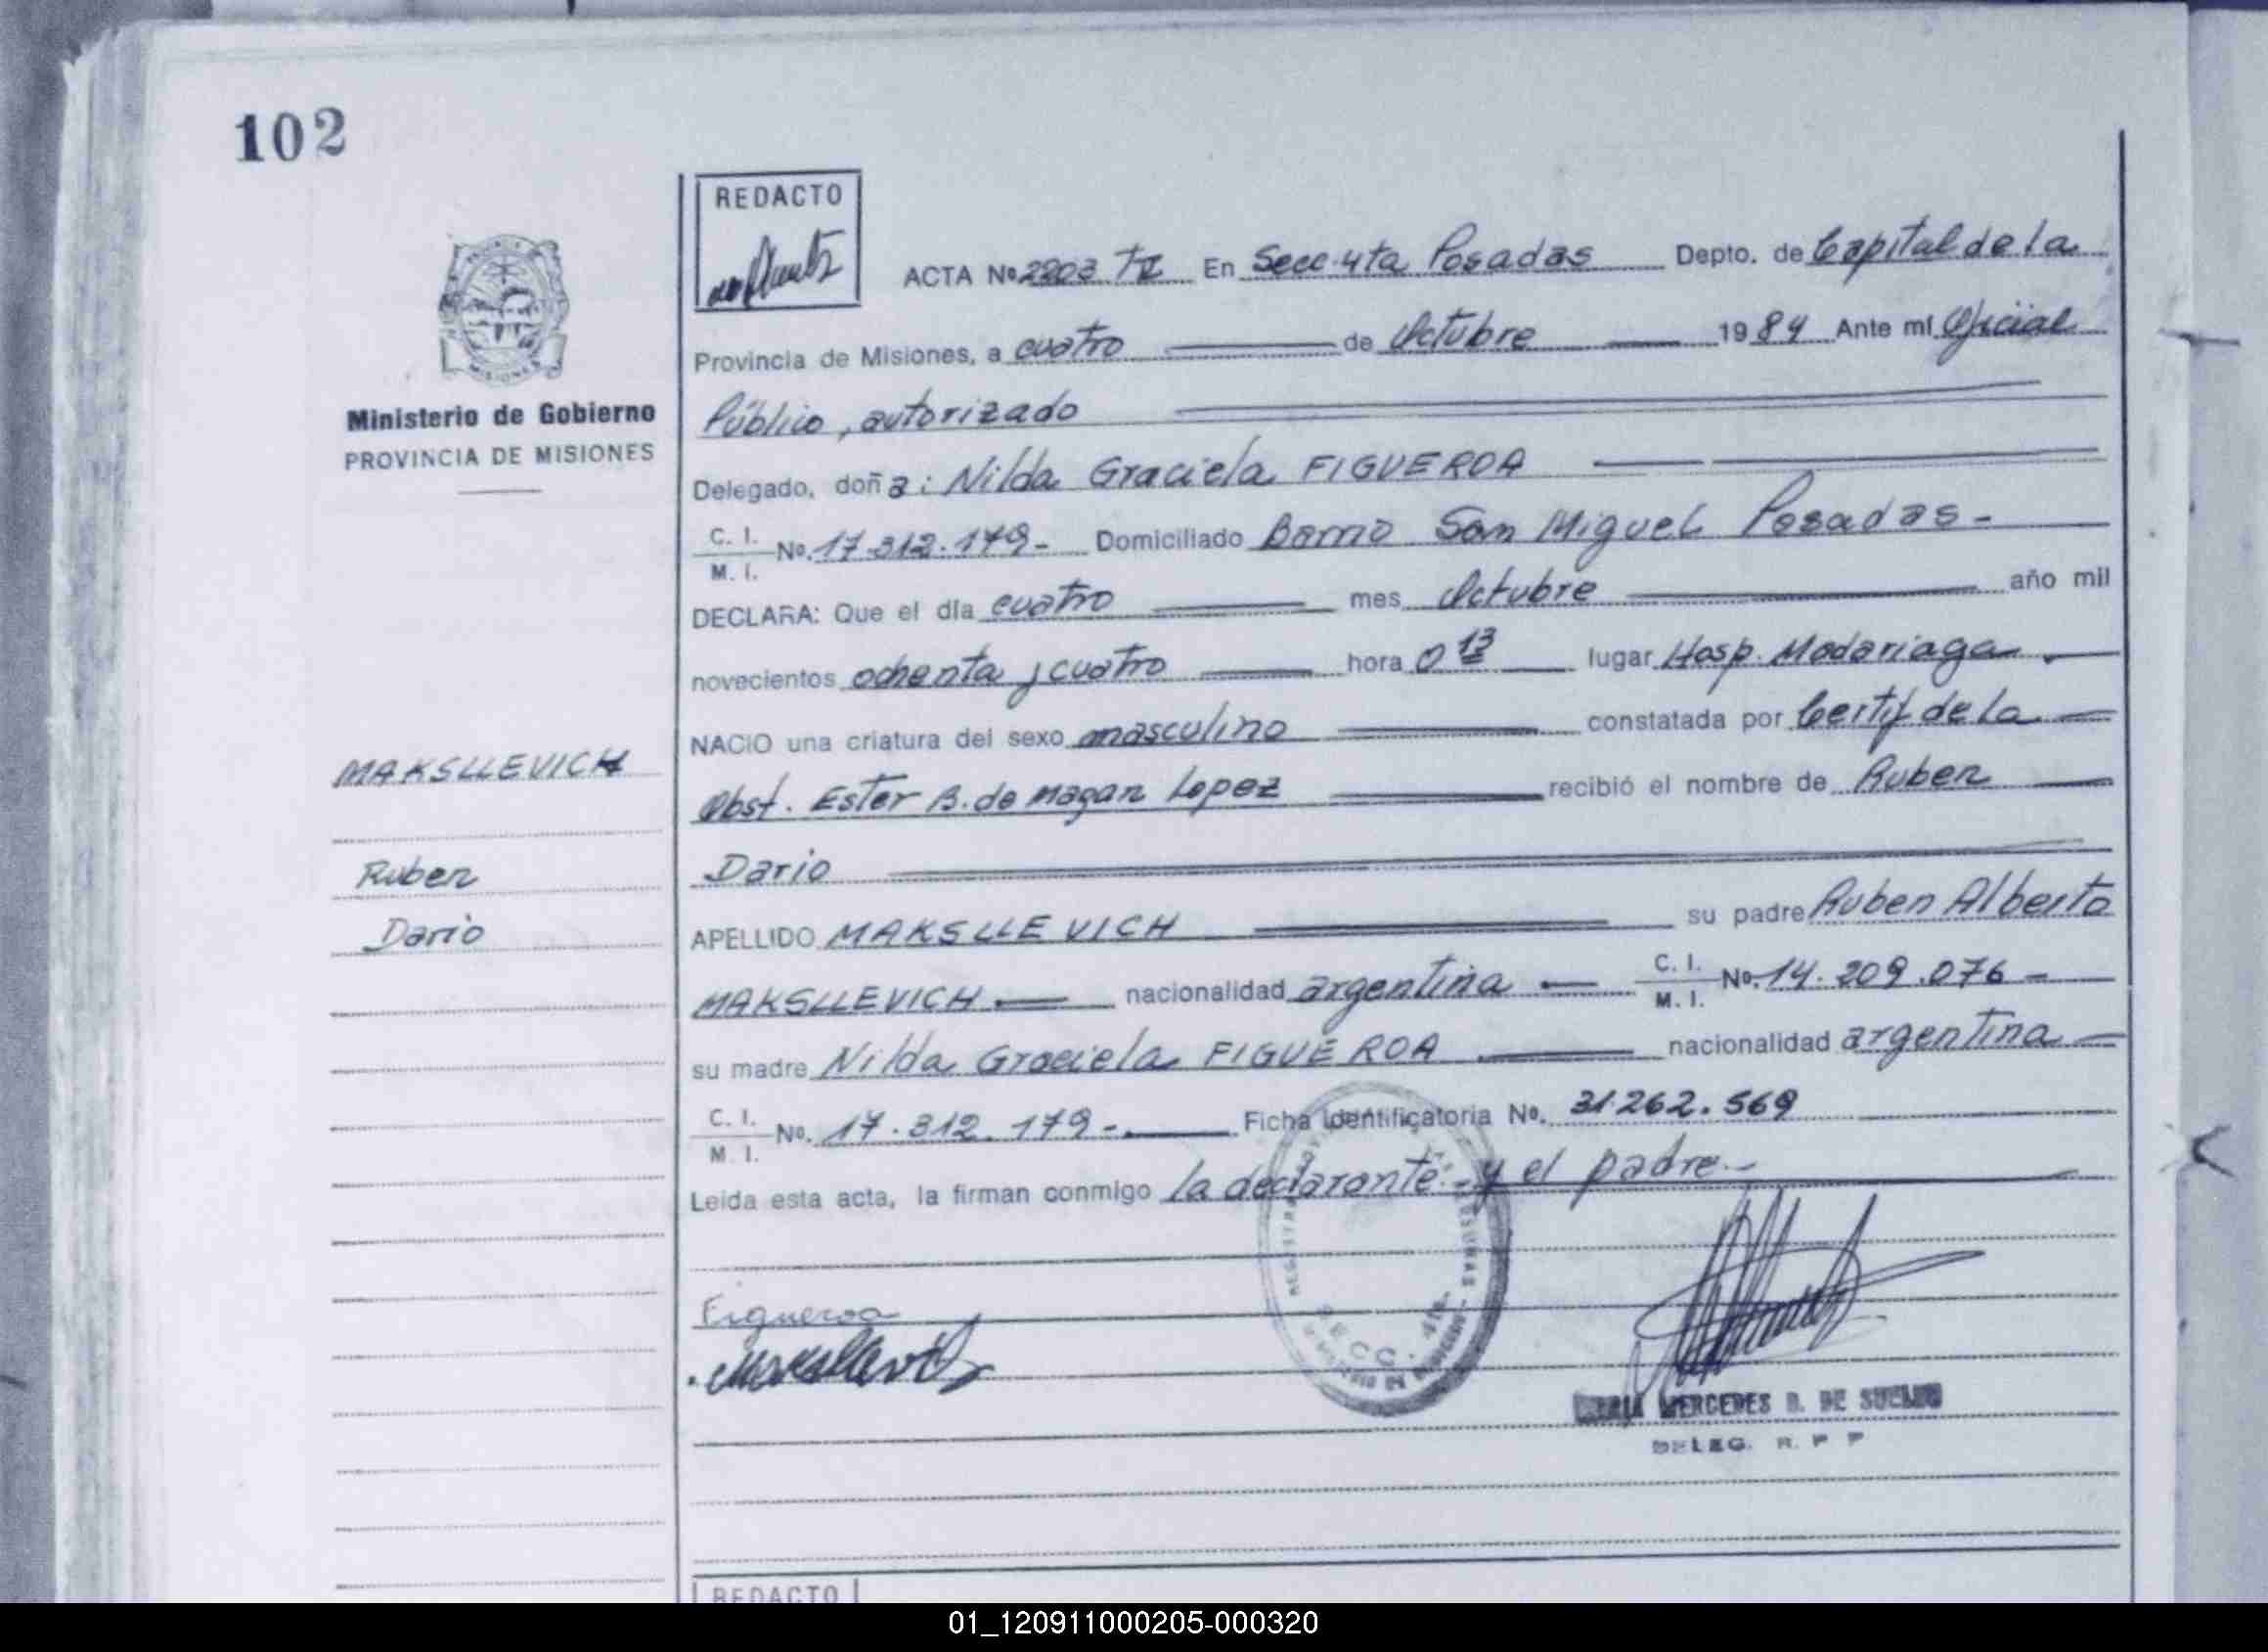 102
REDACTO
ACTA Nº 2803 TV En Secc. 4ta Posadas Depto. de Capital de la
Provincia de Misiones, a cuatro de Octubre 1984 Ante mí Oficial
Público, autorizado
Ministerio de Gobierno
PROVINCIA DE MISIONES
Delegado, doña: Nilda Graciela FIGUEROA
C. I.
M. I. Nº. 17.312.179- Domiciliado Barrio San Miguel Posadas-
DECLARA: Que el día cuatro mes Octubre año mil
novecientos ochenta y cuatro hora 0 13 lugar Hosp. Madariaga
NACIO una criatura del sexo masculino constatada por Certif de la
MAKSLLEVICH
Obst. Ester B. de Magan Lopez recibió el nombre de Ruben
Ruben
Dario
Dario
APELLIDO MAKSLLEVICH su padre Ruben Alberto
MAKSLLEVICH nacionalidad argentina C. I. M. I. Nº. 14.209.076-
su madre Nilda Graciela FIGUEROA nacionalidad argentina
C. I.
M. I. Nº. 17.312.179- Ficha identificatoria Nº. 31.262.569
Leida esta acta, la firman conmigo la declarante.- y el padre.-
Figueroa
SECC. 4ta.
MARIA MERCEDES B. DE
DELEG. R. P P
REDACTO
01_120911000205-000320